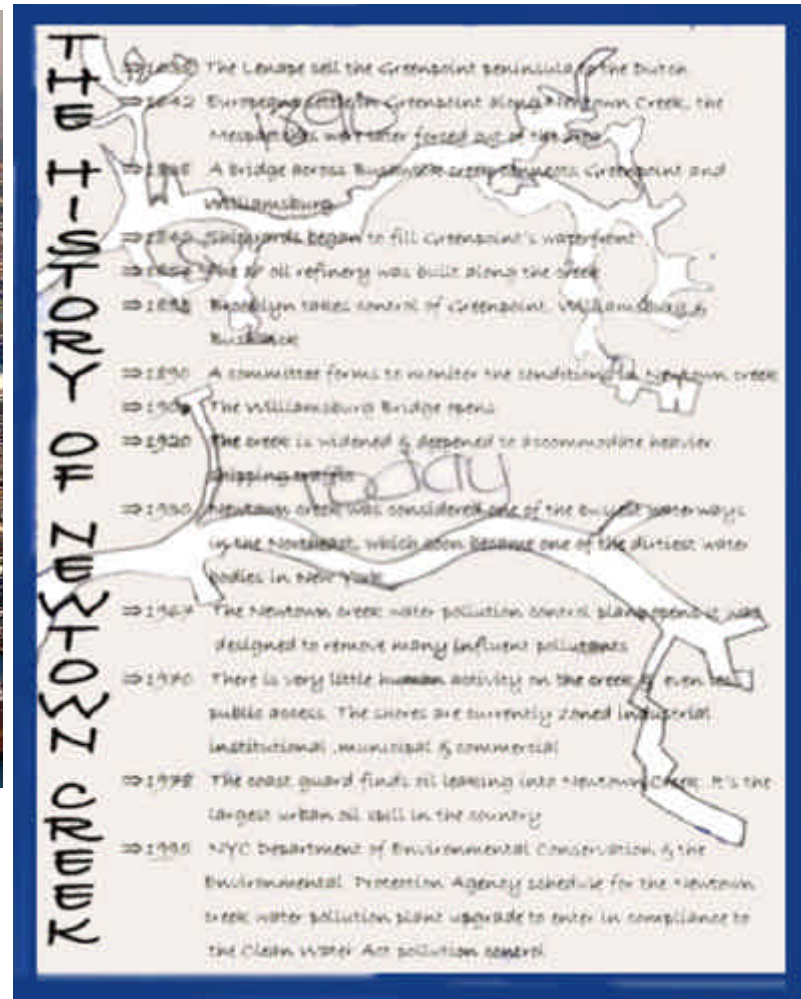 THE HISTORY OF NEWTOWN CREEK
⇒ The Lenape sell the Greenpoint peninsula to the Dutch
⇒1642 Europeans settle in Greenpoint along Newtown Creek, the
were later forced out of the area
1890
⇒ A bridge across Bushwick creek connects Greenpoint and
Williamsburg
⇒1842 Shipyards began to fill Greenpoint's waterfront
⇒ The oil refinery was built along the creek
⇒ Brooklyn takes control of Greenpoint, Williamsburg &
Bushwick
⇒1890 A committee forms to monitor the conditions Newtown creek
⇒ The Williamsburg Bridge opens
⇒1920 The creek is widened & deepened to accommodate heavier
shipping traffic
Today
⇒1930 Newtown creek was considered one of the busiest waterways
in the Northeast, which soon became one of the dirtiest water
bodies in New York
⇒1967 The Newtown creek water pollution control plant opens it was
designed to remove many influent pollutants
⇒1970 There is very little human activity on the creek & even less
public access. The shores are currently zoned industrial
institutional, municipal & commercial
⇒1978 The coast guard finds oil leaking into Newtown Creek. It's the
largest urban oil spill in the country
⇒1995 NYC Department of Environmental Conservation & the
Environmental Protection Agency schedule for the Newtown
creek water pollution plant upgrade to enter in compliance to
the Clean Water Act pollution control